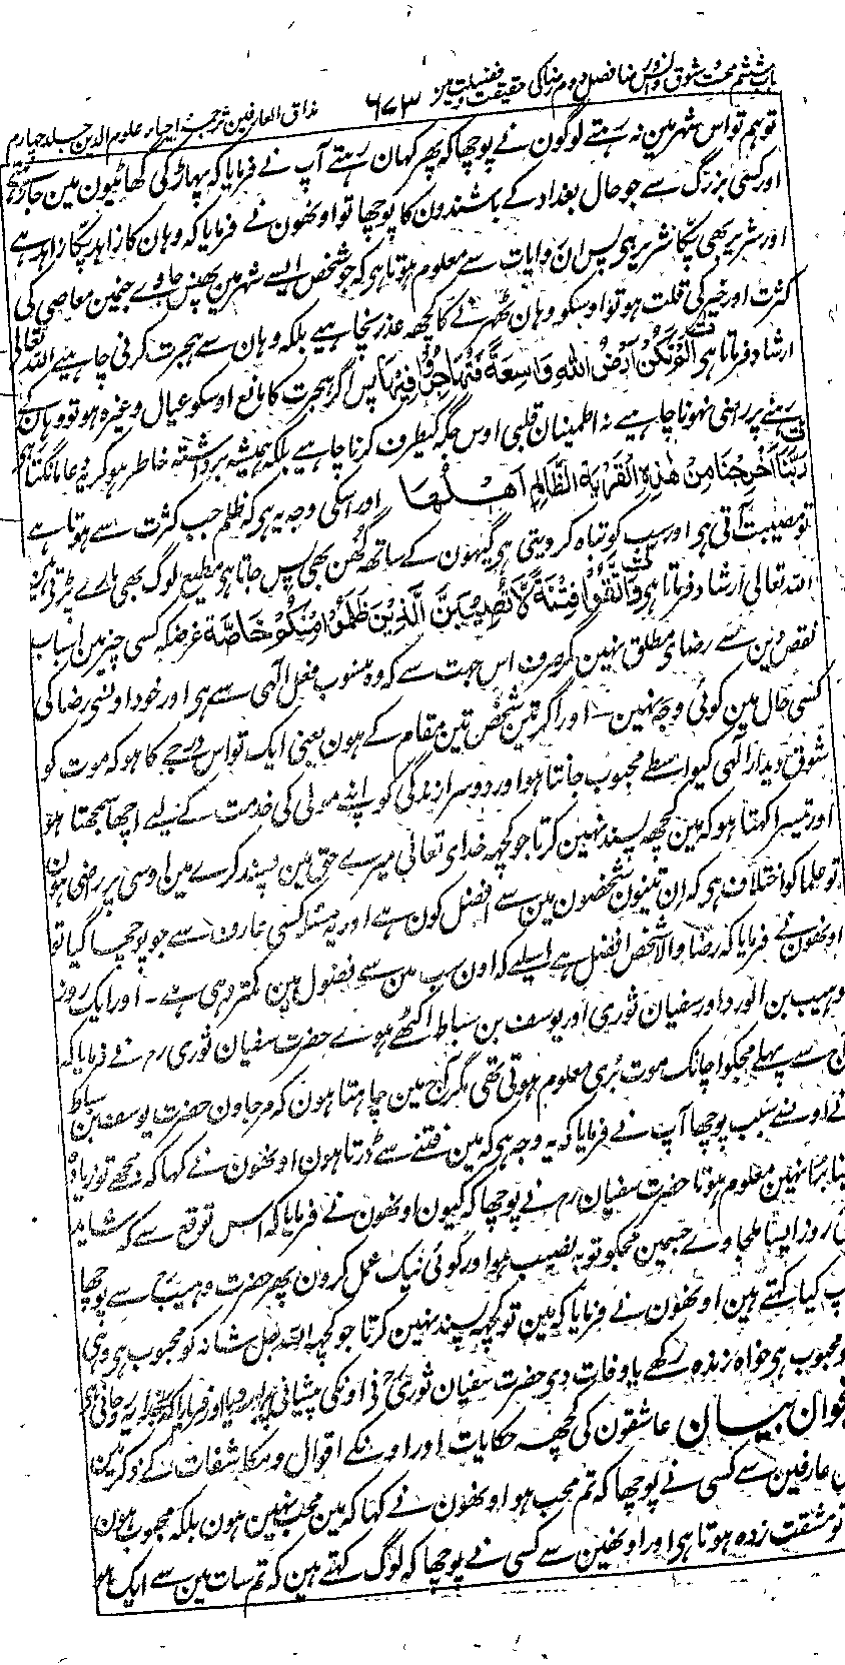 باب ششم محبت و شوق و انس و رضا فصل دوم رضا کی حقیقت و فضیلت میں ۶۷۳ مذاق العارفین ترجمہ احیاء علوم الدین جلد چہارم
تو ہم تو اس شہر مین نہ رہتے لوگون نے پوچھا کہ پھر کہان رہتے آپ نے فرمایا کہ پہاڑ کی گھاٹیون مین جا رہتے
اور کسی بزرگ سے جو حال بغداد کے باشندون کا پوچھا تو اونھون نے فرمایا کہ وہان کا زاہد پکا زاہد ہے
اور شریر بھی پکا شریر ہی پس ان روایات سے معلوم ہوتا ہی کہ جو شخص ایسے شہر مین پھنس جاوے جنمین معاصی کی
کثرت اور خیر کی قلت ہو تو اوسکو وہان ٹھہرنے کا کچھ عذر نچاہیے بلکہ وہان سے ہجرت کرنی چاہیے اللہ تعالی
ارشاد فرماتا ہی اَلَمْ تَكُنْ اَرْضُ اللهِ وَاسِعَةً فَتُهَاجِرُوْا فِيْهَا پس اگر ہجرت کا مانع اوسکو عیال وغیرہ ہو تو وہان کے
رہنے پر راضی نہونا چاہیے نہ اطمینان قلبی اوس جگہ کیطرف کرنا چاہیے بلکہ ہمیشہ برداشتہ خاطر ہو کر یہ دعا مانگتا رہے
رَبَّنَا اَخْرِجْنَا مِنْ هٰذِهِ الْقَرْيَةِ الظَّالِمِ اَهْلُهَا اور اسکی وجہ یہ ہی کہ ظلم جب کثرت سے ہوتا ہے
تو مصیبت آتی ہی اور سب کو تباہ کر دیتی ہی گیہون کے ساتھ گھن بھی پس جاتا ہی مطیع لوگ بھی مارے پڑتے ہین
اللہ تعالی ارشاد فرماتا ہی وَاتَّقُوْا فِتْنَةً لَّا تُصِيْبَنَّ الَّذِيْنَ ظَلَمُوْا مِنْكُمْ خَاصَّةً غرضکہ کسی چیز مین اسباب
نقص دین سے رضای مطلق نہین مگر صرف اس جہت سے کہ وہ منسوب فعل الٰہی سے ہی اور خود اونسی رضا کی
کسی حال مین کوئی وجہ نہین ۔ اور اگر تین شخص تین مقام کے ہون یعنی ایک تو اس درجے کا ہو کہ موت کو
شوق دیدار الٰہی کیواسطے محبوب جانتا ہو اور دوسرا زندگی کو اپنے مولی کی خدمت کے لیے اچھا سمجھتا ہو
اور تیسرا کہتا ہو کہ مین کچھ پسند نہین کرتا جو کچھ خدای تعالی میرے حق مین پسند کرے مین اوسی پر راضی ہون
تو علما کو اختلاف ہی کہ ان تینون شخصون مین سے افضل کون ہے اور یہ مسئلہ کسی عارف سے جو پوچھا گیا تو
اونھون نے فرمایا کہ رضا والا شخص افضل ہے اسلیے کہ اون سب مین سے فضول مین کمتر وہی ہے ۔ اور ایک روز
وہیب بن الورد اور سفیان ثوری اور یوسف بن سباط اکٹھے ہوے حضرت سفیان ثوری رح نے فرمایا کہ
سے پہلے مجکو اچانک موت بری معلوم ہوتی تھی مگر آج مین چاہتا ہون کہ مر جاون حضرت یوسف بن سباط
نے اونسے سبب پوچھا آپ نے فرمایا کہ یہ وجہ ہی کہ مین فتنے سے ڈرتا ہون اونھون نے کہا کہ مجھے تو زیادہ
برا نہین معلوم ہوتا حضرت سفیان رح نے پوچھا کہ کیون اونھون نے فرمایا کہ اس توقع سے کہ شاید
روز ایسا ملجاوے جسمین مجکو توبہ نصیب ہو اور کوئی نیک عمل کرون پھر حضرت وہیب سے پوچھا
کیا کہتے ہین اونھون نے فرمایا کہ مین تو کچھ پسند نہین کرتا جو کچھ اللہ جل شانہ کو محبوب ہو وہی
محبوب ہی خواہ زندہ رکھے یا وفات دی حضرت سفیان ثوری رح نے اونکی پیشانی پر بوسہ دیا اور فرمایا کہ روحانی ہے
بیان عاشقون کی کچھ حکایات اور اونکے اقوال و مکاشفات کے ذکر مین
عارفین سے کسی نے پوچھا کہ تم محب ہو اونھون نے کہا کہ مین محب نہین ہون بلکہ محبوب ہون
تو مشقت زدہ ہوتا ہی اور اونھین سے کسی نے پوچھا کہ لوگ کہتے ہین کہ تم سات مین سے ایک ہو